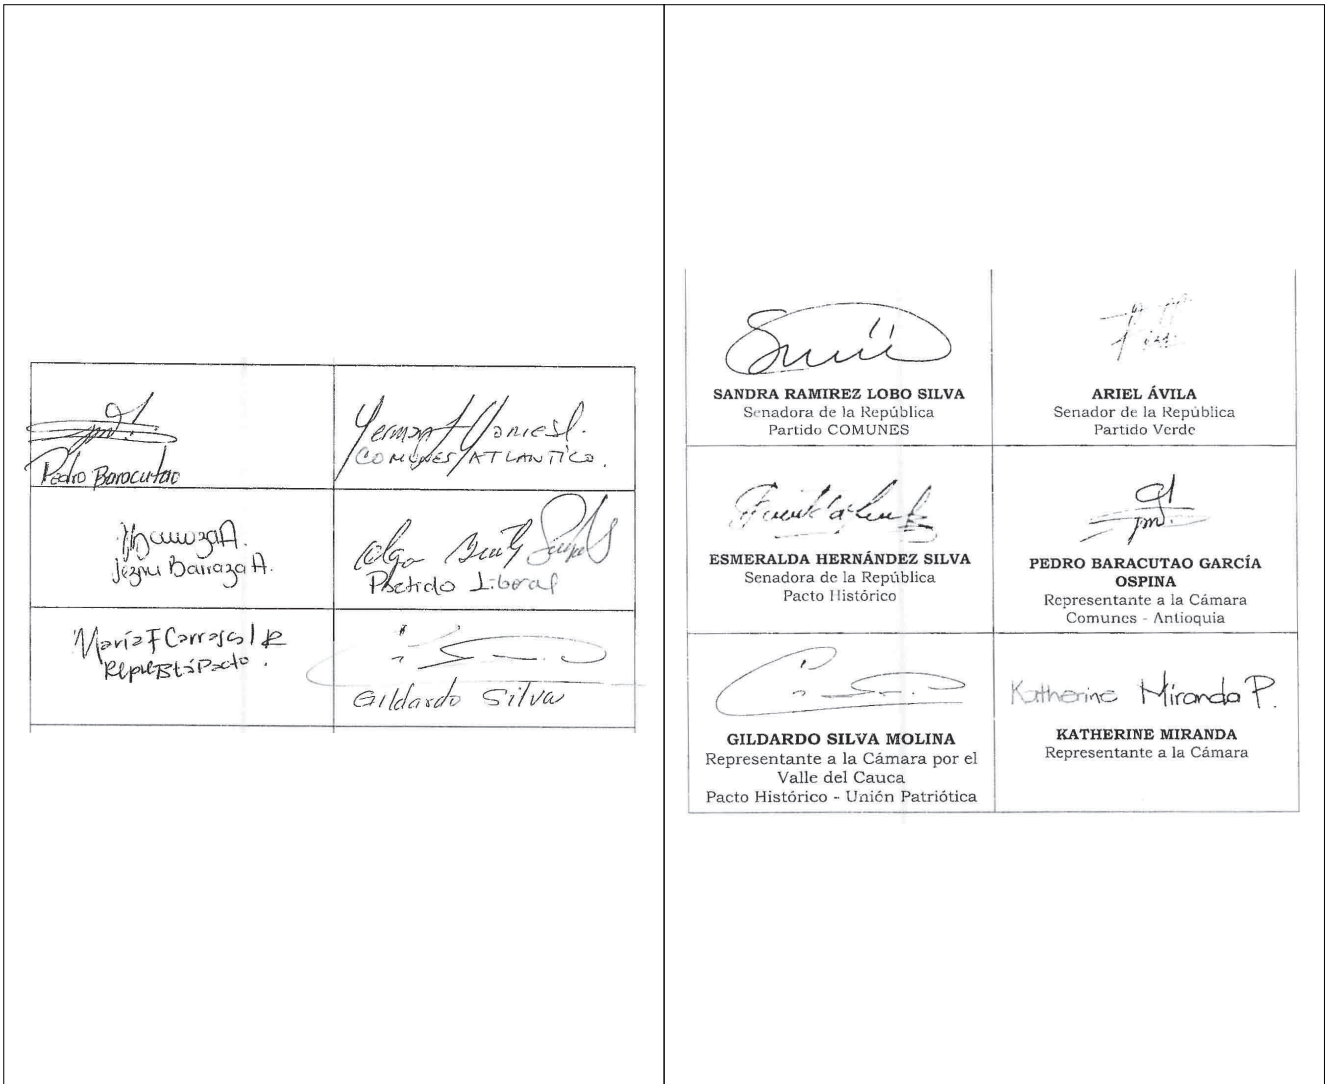 Pedro Baracutao
COMUNES/ATLANTICO.
Barraza A.
Partido Liberal
María F Carrascal R
Gildardo Silva
SANDRA RAMIREZ LOBO SILVA
Senadora de la República
Partido COMUNES
ARIEL ÁVILA
Senador de la República
Partido Verde
ESMERALDA HERNÁNDEZ SILVA
Senadora de la República
Pacto Histórico
PEDRO BARACUTAO GARCÍA
OSPINA
Representante a la Cámara
Comunes - Antioquia
GILDARDO SILVA MOLINA
Representante a la Cámara por el
Valle del Cauca
Pacto Histórico - Unión Patriótica
Katherine Miranda P.
KATHERINE MIRANDA
Representante a la Cámara